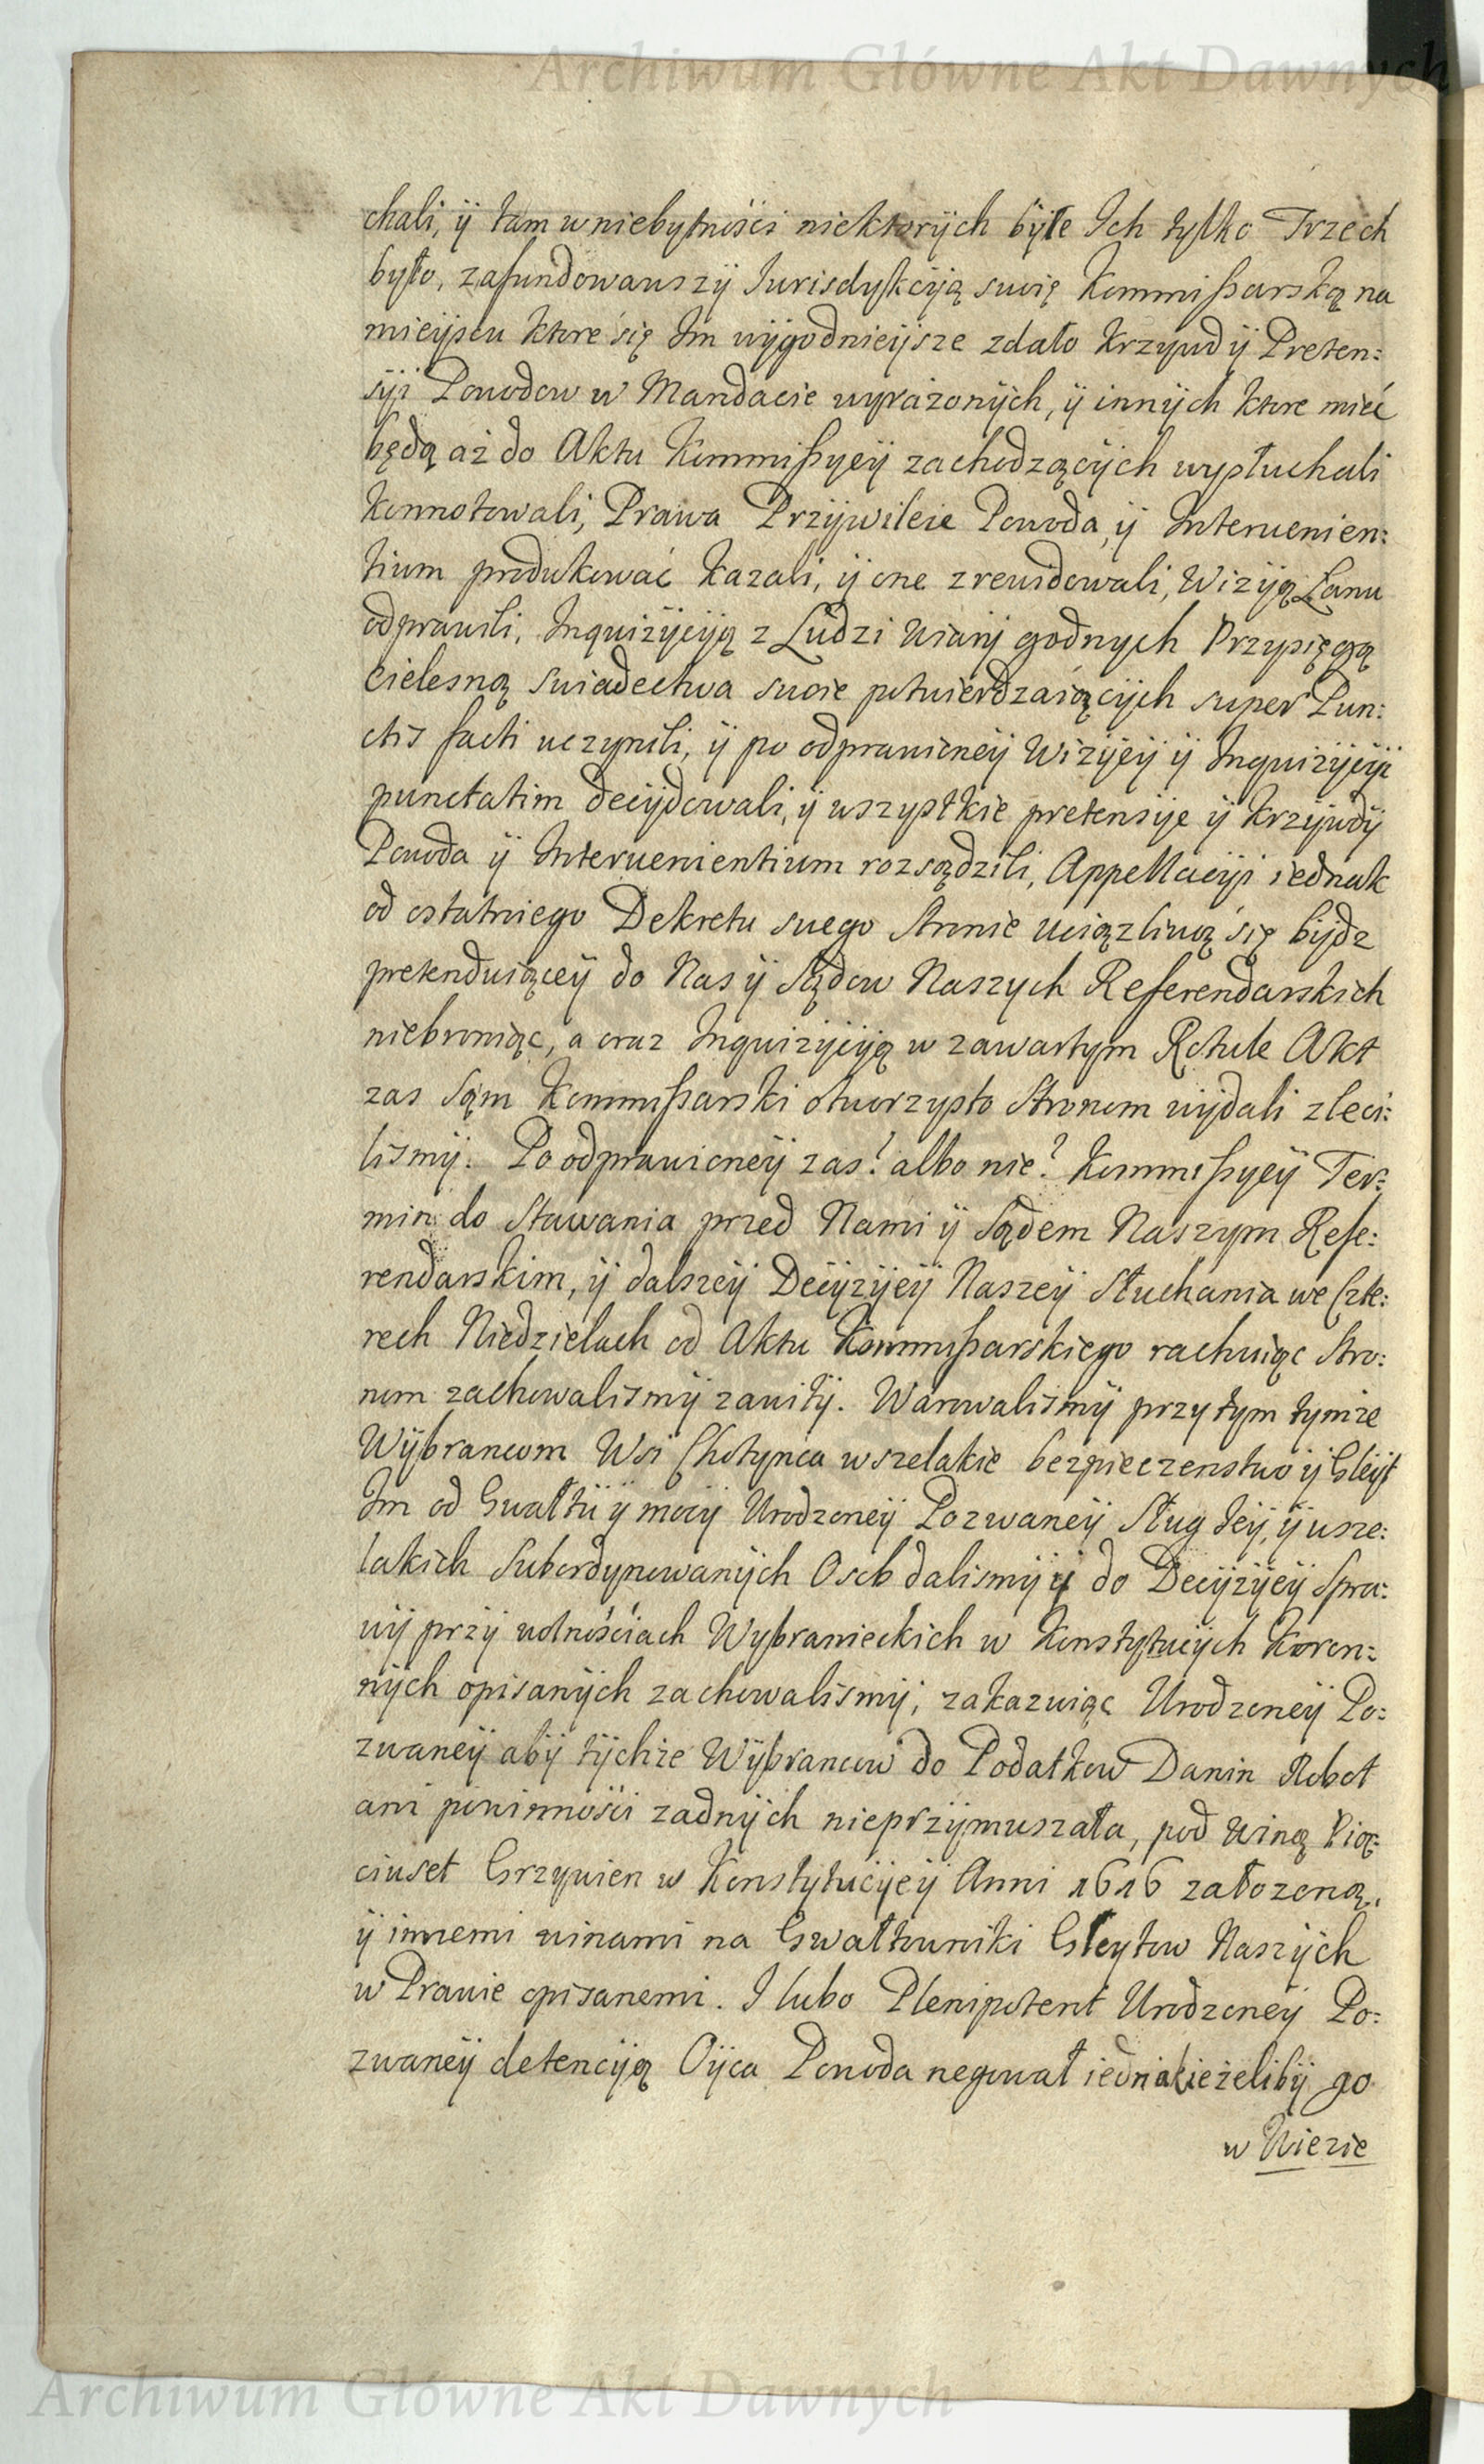 Archiwum Główne Akt Dawnych
chali, ÿ tam w niebytności niektorÿch byłe Ich tylko Trzech
było, zafundowawszÿ Jurisdykcÿią swoię Kommissarską na
mieÿscu ktore się Im wÿgodnieÿsze zdało Krzywd ÿ Preten:
sÿi Powodow w Mandacie wyrażonÿch, ÿ innÿch ktore mieć
będą aż do Aktu Kommissyeÿ zachodzącÿch wysłuchali
Konnotowali, Prawa Przÿwileie Powoda, ÿ Interuenien:
tium produkować kazali, ÿ one zrewidowali, Wizÿą Łanu
odprawili, Inquizÿcÿą z Ludzi wiarÿ godnych Przysięgą
cielesną swiadectwa swoie potwierdzaiącÿch super Pun:
ctis facti uczynili, ÿ po odprawioneÿ Wizÿeÿ ÿ Inquizÿcÿi
punctatim decÿdowali, ÿ wszystkie pretensÿe ÿ krzÿwdÿ
Powoda ÿ Interuenientium rozsądzili, Appellacÿi iednak
od ostatniego Dekretu swego Stronie uciązliwą się bÿdz
pretenduiąceÿ do Nas ÿ Sądow Naszych Referendarskich
niebroniąc, a oraz Inquizÿcÿą w zawartym Rotule Akt
zas Sąm Kommissarski otworzysto Stronom wÿdali zleci:
lismÿ. Po odprawioneÿ zas? albo nie? Kommissyeÿ Ter:
min do Stawania przed Nami ÿ Sądem Naszym Refe:
rendarskim, ÿ dalszeÿ Decÿzÿeÿ Naszeÿ Słuchania we Czte:
rech Niedzielach od Aktu Kommissarskiego rachuiąc Stro:
nom zachowalismÿ zawitÿ. Warowalismÿ przy tym tymże
Wÿbrancom Wsi Chotynca wszelakie bezpieczenstwo ÿ Gleÿt
Im od Gwałtu ÿ mocÿ Urodzoneÿ Pozwaneÿ Sług Jeÿ, ÿ wsze:
lakich Subordynowanÿch Osob dalismÿ ÿ do Decÿzÿeÿ Spra:
wÿ przÿ wolnościach Wybranieckich w Konstytucÿch Koron:
nÿch opisanÿch zachowalismÿ, zakazuiąc Urodzoneÿ Po:
zwaneÿ abÿ tÿchże Wÿbrancow do Podatkow Danin Robot
ani powinności zadnÿch nieprzÿmuszała, pod winą Pią:
ciuset Grzywien w Konstytucÿeÿ Anni 1616 załozoną,
ÿ innemi winami na Gwałtowniki Gleytow Naszÿch
w Prawie opisanemi. I lubo Plenipotent Urodzoneÿ Po:
zwaneÿ detencÿą Oÿca Powoda negował iednak ieżelibÿ go
w Wiezie
Archiwum Główne Akt Dawnych